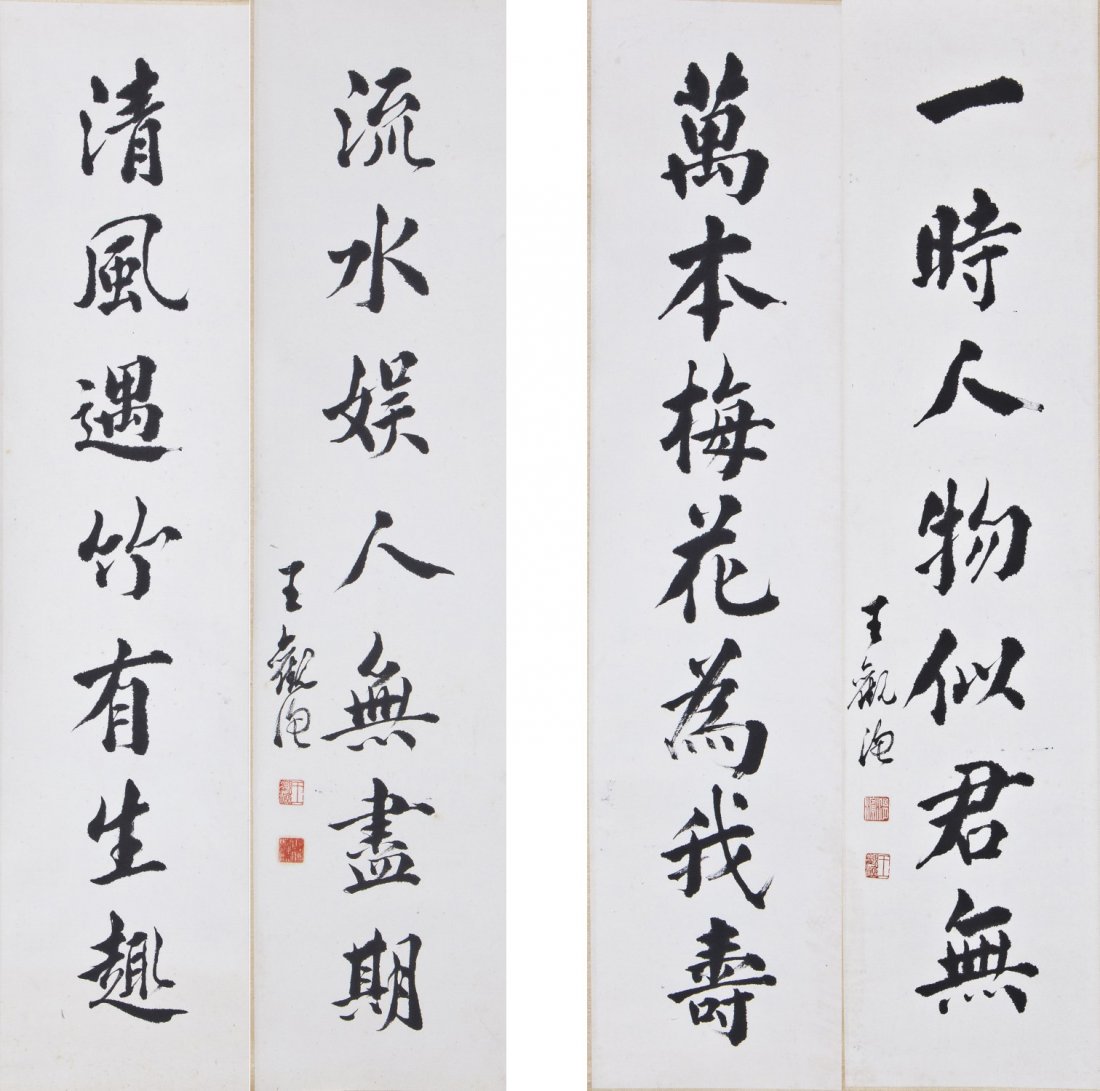 清風遇竹有生趣
流水娯人無盡期
王觀漁
萬本梅花為我壽
一時人物似君無
王觀漁